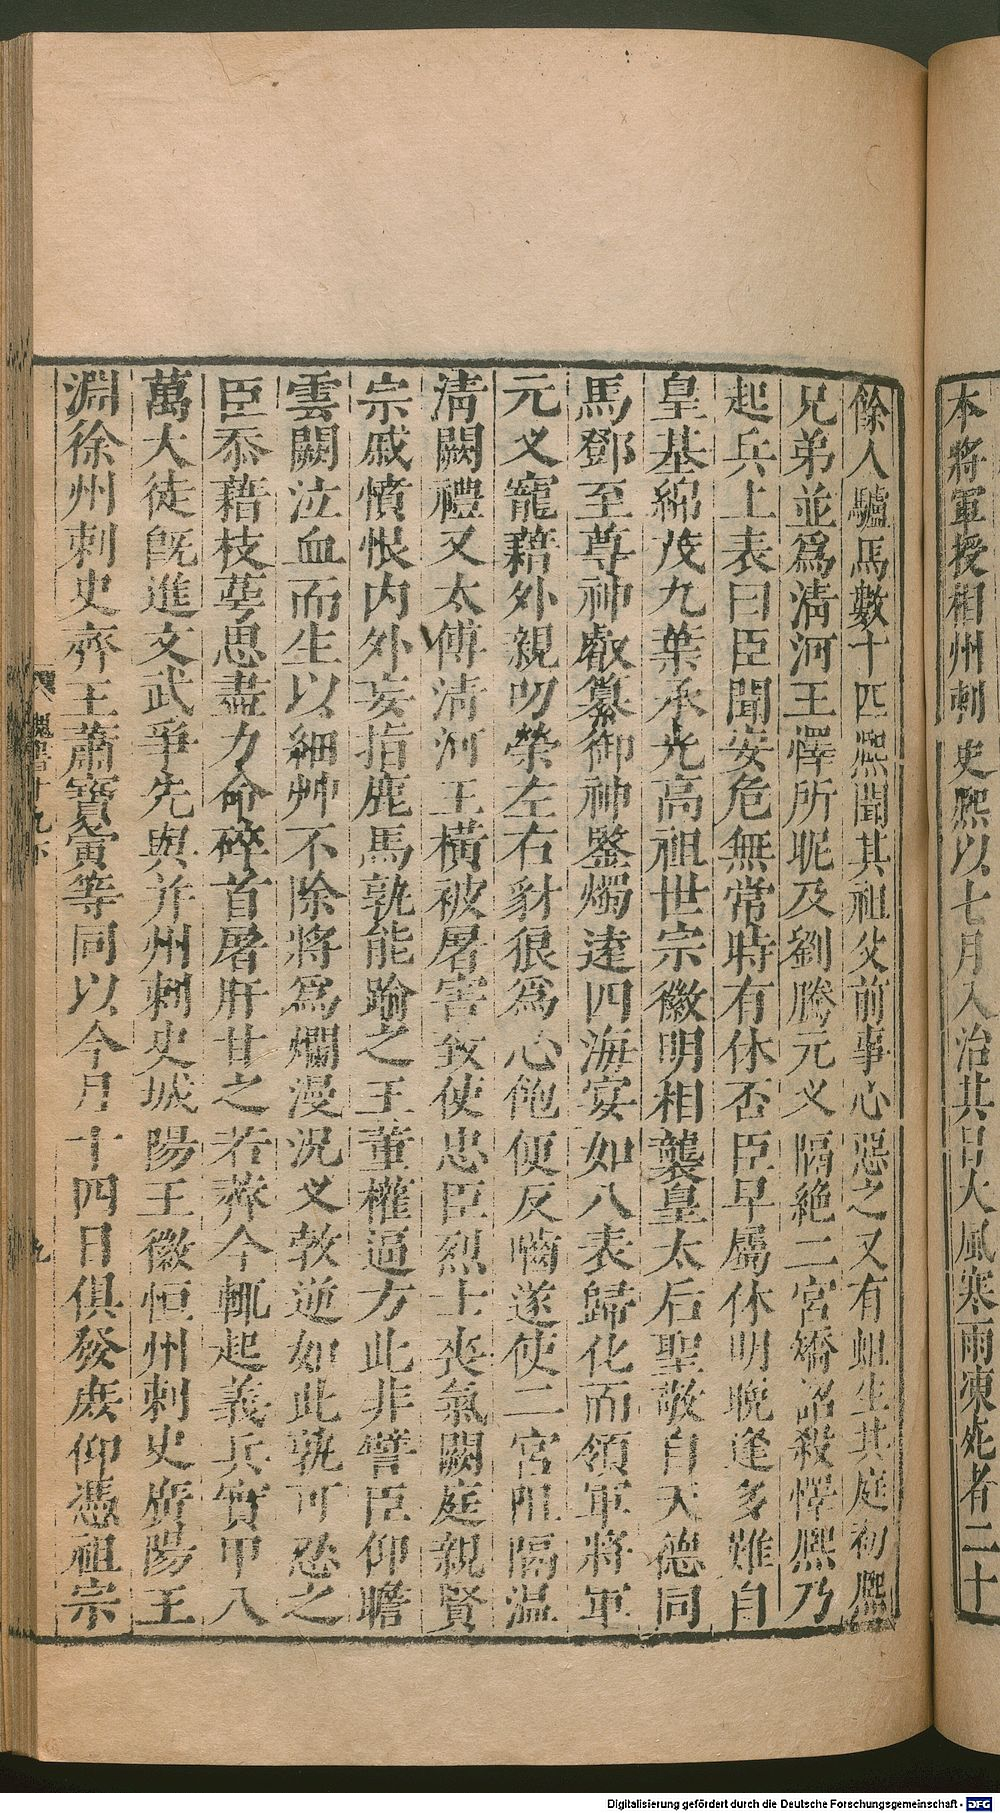 本將軍授相州刺史熙以七月入治其日大風寒雨凍死者二十
餘人驢馬數十匹熙聞其祖父前事心惡之又有蛆生其庭初熙
兄弟並爲清河王懌所昵及劉騰元义隔絶二宮矯詔殺懌熙乃
起兵上表曰臣聞安危無常時有休否臣早屬休明晚逢多難自
皇基綿茂九葉承光高祖世宗徽明相襲皇太后聖敬自天德同
馬鄧至尊神叡纂御神鑒燭遠四海宴如八表歸化而領軍將軍
元义寵藉外親叨榮左右豺狠爲心飽便反噬遂使二宮阻隔温
清闕禮又太傅清河王横被屠害致使忠臣烈士喪氣闕庭親賢
宗戚憤恨内外妄指鹿馬孰能踰之王董權逼方此非譬臣仰瞻
雲闕泣血而生以細艸不除將爲爛漫況义敦逆如此孰可忍之
臣忝藉枝萼思盡力命碎首屠肝甘之若薺今輒起義兵實甲八
萬大徒旣進文武爭先與并州刺史城陽王徽恒州刺史廣陽王
淵徐州刺史齊王蕭寶夤等同以今月十四日俱發庶仰憑祖宗
魏書十九下
九
Digitalisierung gefördert durch die Deutsche Forschungsgemeinschaft - DFG